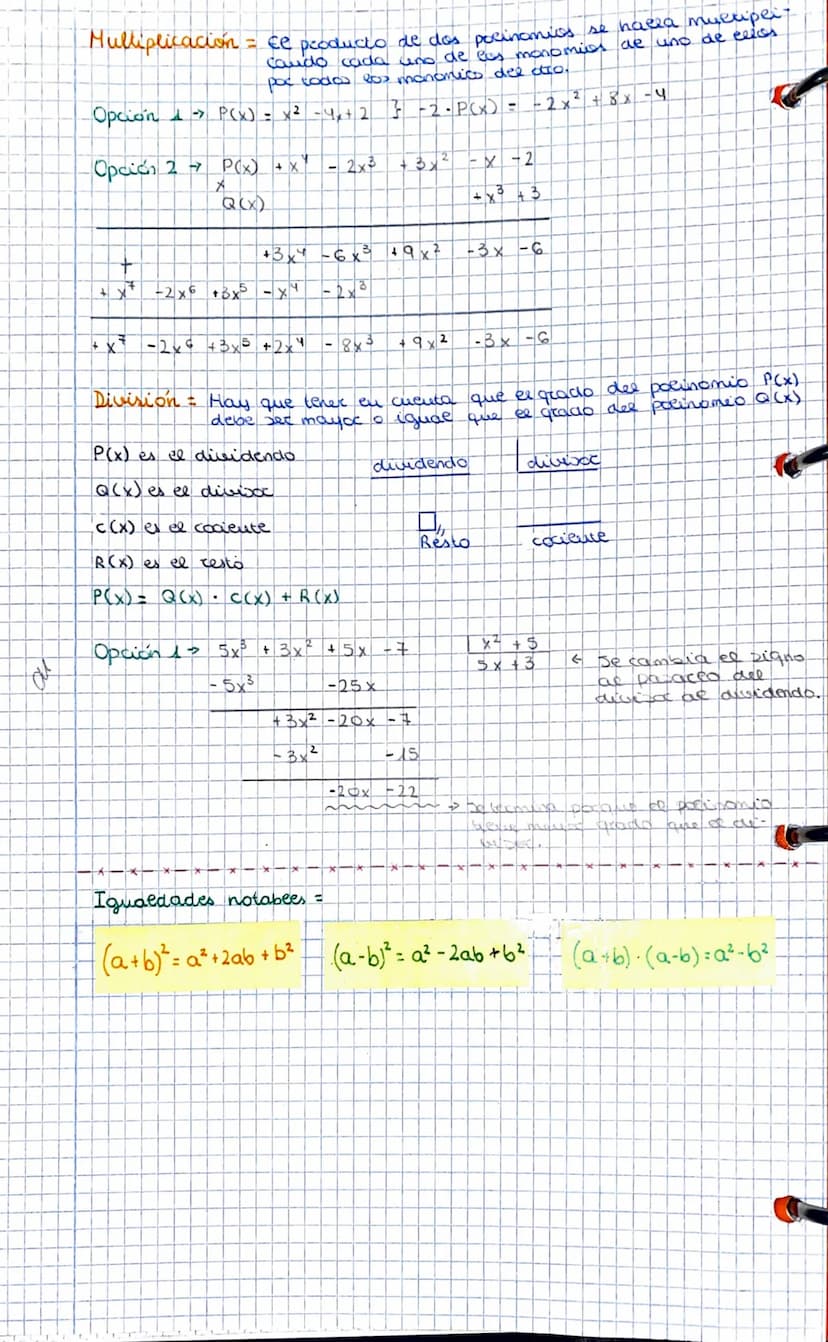 Multiplicación = El producto de dos polinomios se halla multipli-
cando cada uno de los monomios de uno de ellos
por todos los monomios del otro.
Opción 1 → P(x) = x² - 4x + 2 } -2 · P(x) = -2x² + 8x - 4
Opción 2 → P(x) + x⁴ - 2x³ + 3x² - x - 2
x
Q(x) + x³ + 3
+3x⁴ - 6x³ + 9x² - 3x - 6
+
+ x⁷ - 2x⁶ + 3x⁵ - x⁴ - 2x³
+ x⁷ - 2x⁶ + 3x⁵ + 2x⁴ - 8x³ + 9x² - 3x - 6
División = Hay que tener en cuenta que el grado del polinomio P(x)
debe ser mayor o igual que el grado del polinomio Q(x)
P(x) es el dividendo
dividendo divisor
Q(x) es el divisor
C(x) es el cociente
Resto cociente
R(x) es el resto
P(x) = Q(x) · C(x) + R(x)
Opción 1 → 5x³ + 3x² + 5x - 7 x² + 5
- 5x³ - 25x 5x + 3 ← Se cambia el signo
al pasarlo del
divisor al dividendo.
+3x² - 20x - 7
- 3x² - 15
-20x - 22
→ Se termina porque el polinomio
grado que el di-
visor.
Igualdades notables =
(a+b)² = a² + 2ab + b² (a-b)² = a² - 2ab + b² (a+b) · (a-b) = a² - b²